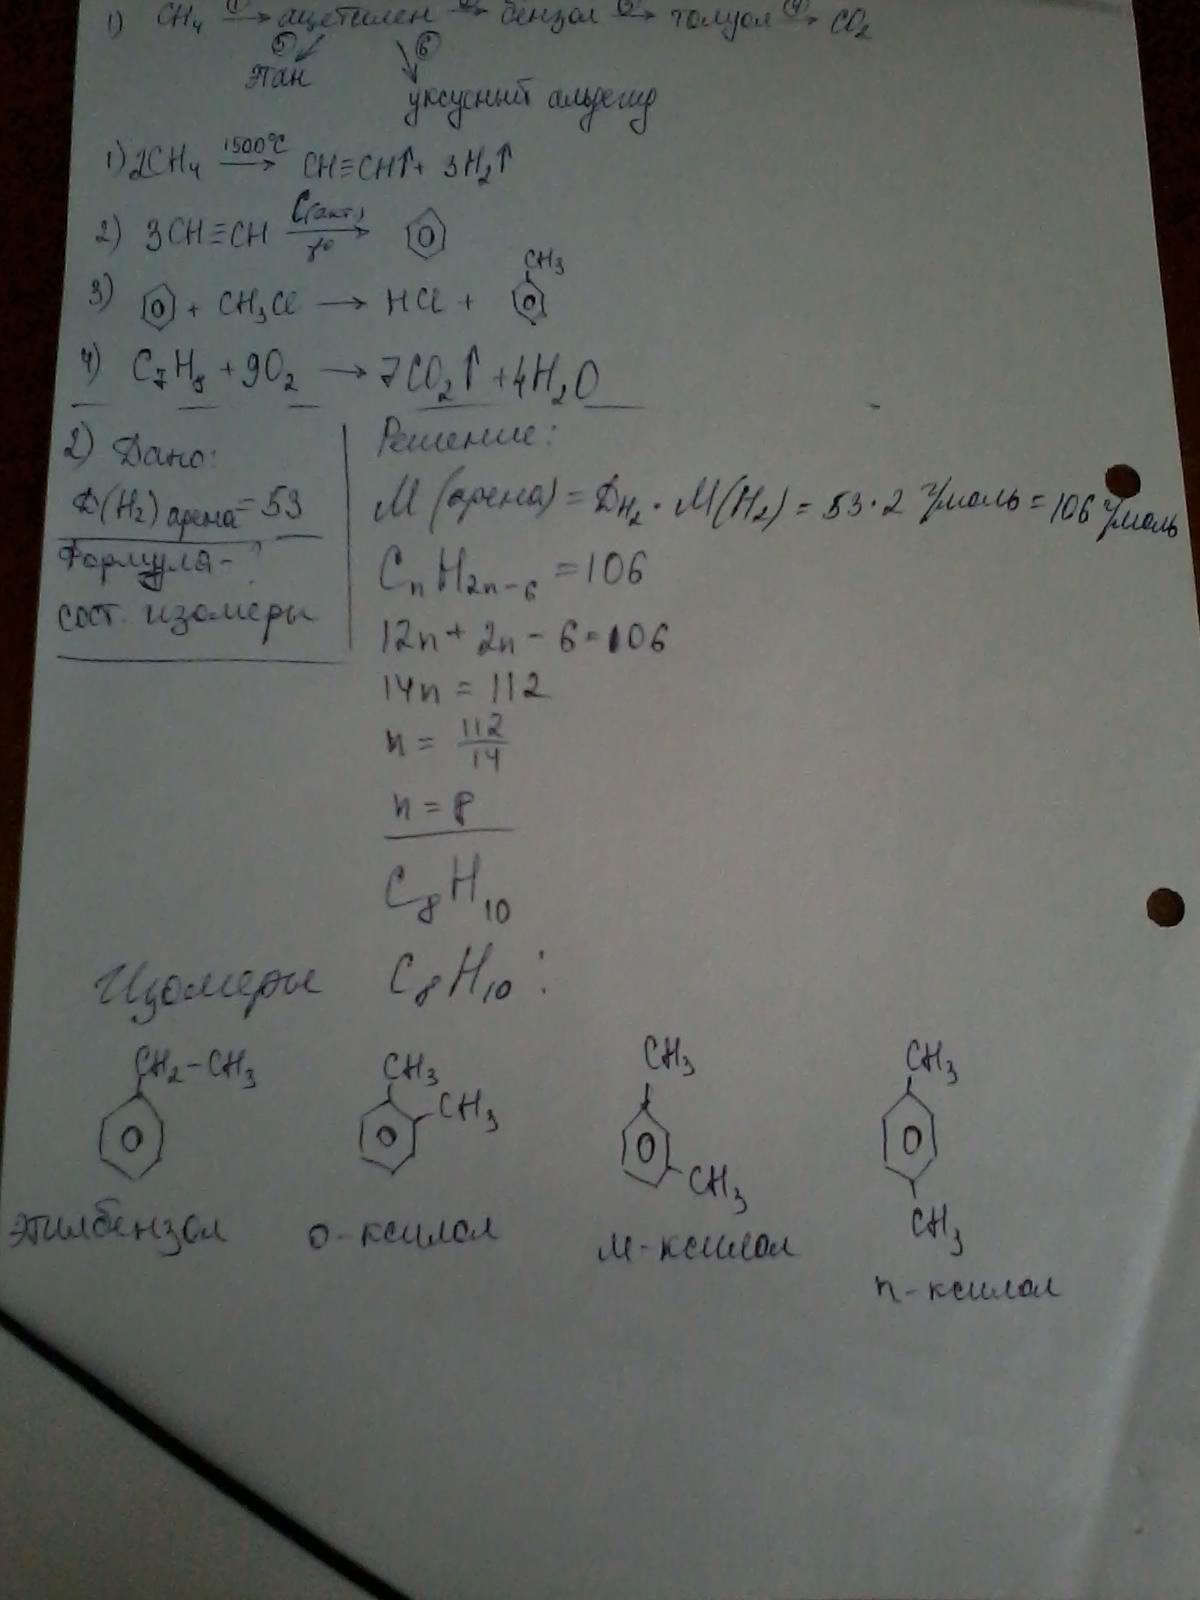 1) CH₄ ① → ацетилен → бензол → толуол ④ → CO₂
⑤ ⑥
Этан
уксусный альдегид
1) 2CH₄ 1500°C → CH≡CH↑ + 3H₂↑
2) 3CH≡CH C(акт.) →
3) + CH₃Cl → HCl + CH₃
4) C₇H₈ + 9O₂ → 7CO₂↑ + 4H₂O
2) Дано:
D(H₂) арена = 53
Формула - ?
сост. изомеры
Решение:
M (арена) = D_H₂ · M(H₂) = 53 · 2 г/моль = 106 г/моль
CₙH₂ₙ₋₆ = 106
12n + 2n - 6 = 106
14n = 112
n = 112/14
n = 8
C₈H₁₀
Изомеры C₈H₁₀ :
CH₂-CH₃ CH₃ CH₃ CH₃
CH₃ CH₃ CH₃
этилбензол о-ксилол м-ксилол п-ксилол